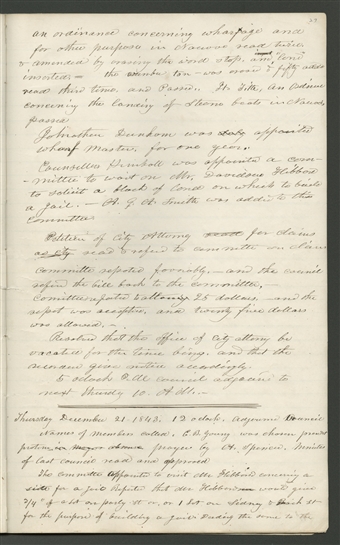 an ordinance concerning wharfage and
for other purpose in Nauvoo read twice
& amended by erasing the word stop, and
inserted — the number ten was erased & fifty added
read third time and Passed. Its Title, An Ordinance
concerning the Landing of Steam boats in Nauvoo,
passed
Johnathan Dunham was appointed
wharf Master, for one year.
Councillor Kimball was appointed a com-
-mittee to wait on Mr. Davidson Hibbard
to solicit a block of land on which to build
a jail. — A. G. A. Smith was added to this
Committee
Petition of City Attorney for claims
read & refered to committee on Claims
Committee reported favorably, — and the council
refered the bill back to the committee, —
Committee reported to attorney 25 dollars — and the
report was accepted, and twenty five dollars
was allowed. —
Resolved that the office of City attorney be
vacated for the time being. and that the
recorder give notice accordingly.
5 oclock P.M. council adjourned to
next Thursday 10. A.M. —
Thursday December 21. 1843. 12 oclock. Adjourned Council
Names of Members called. E. B. Young was chosen president
protem, prayer by O. Spencer. Minutes
of last council read and approved
The committee appointed to visit Hibbard concerning a
site for a Jail Reported that Hibbard would give
3/4 of a lot on party st or, or 1 lot on Sidney & st
for the purpose of building a Jail during the same to the